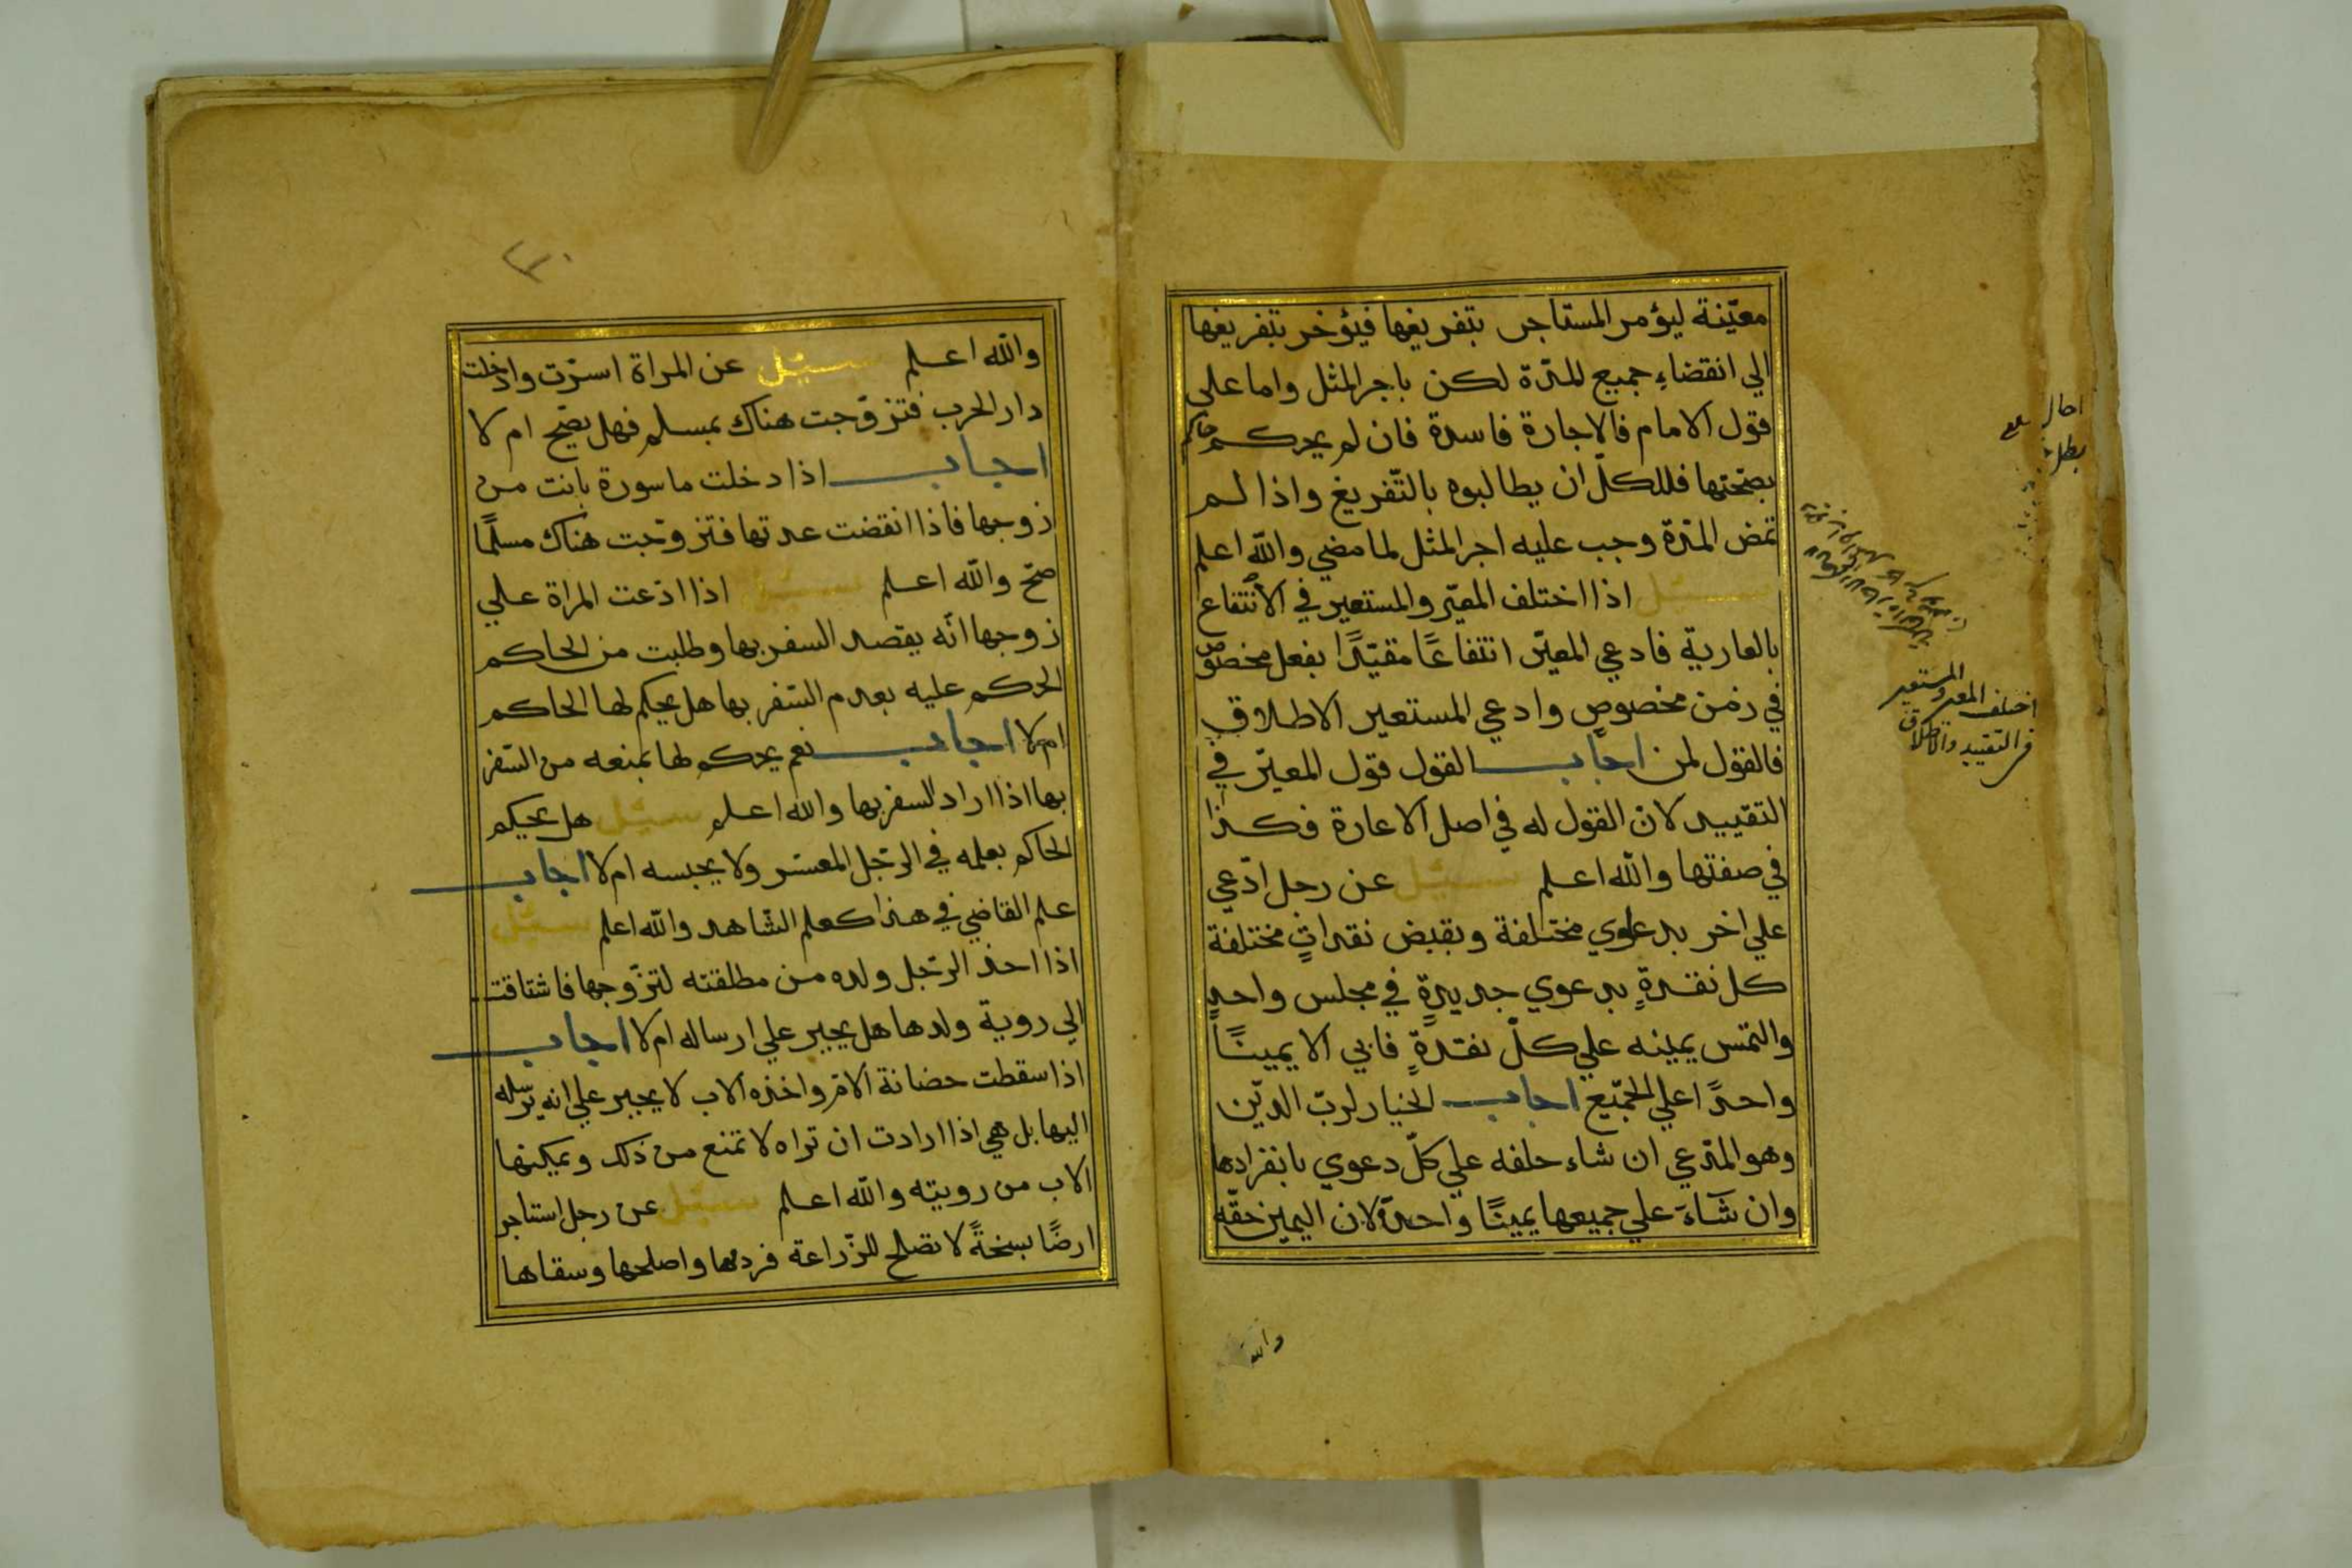 معيّنة ليؤمر المستاجر بتفريغها فيؤخر بتفريغها
الي انقضاءِ جميع المدّة لكن باجر المثل واما علي
قول الامام فالاجارة فاسدة فان لم يحكم حاكم
بصحتها فللكلّ ان يطالبوه بالتّفريغ واذا لم
تمض المدّة وجب عليه اجر المثل لما مضي والله اعلم
سئل اذا اختلف المعيّر والمستعير في الانتفاع
بالعاريّة فادعي المعيّر انتفاعًا مقيّدًا بفعل مخصوص
في زمن مخصوص وادعي المستعير الاطلاق
فالقول لمن اجاب القول قول المعيّر في
التقييد لانّ القول له في اصل الاعارة فكذا
في صفتها والله اعلم سئل عن رجل ادّعي
علي اخر بدعاوي مختلفة وبقبض نقداتٍ مختلفة
كل نقدةٍ بدعوي جديدةٍ في مجلس واحدٍ
والتمس يمينه علي كلّ نقدةٍ فابي الا يمينًا
واحدًا علي الجميع اجاب الخيار لربّ الديّن
وهو المدّعي ان شاء حلفه علي كلّ دعوي بانفرادها
وان شاءَ علي جميعها يمينًا واحدّة لان اليمين حقّه
اختلف المعير والمستعير
في التقييد والاطلاق
والله
٣٠
والله اعلم سئل عن المراة اسرت وادخلت
دار الحرب فتزوّجت هناك بمسلم فهل يصّح ام لا
اجاب اذا دخلت ماسورة بانت من
زوجها فاذا انقضت عدتها فتزوّجت هناك مسلمًا
صحّ والله اعلم سئل اذا ادّعت المراة علي
زوجها انّه يقصد السفر بها وطلبت من الحاكم
الحكم عليه بعدم السّفر بها هل يحكم لها الحاكم
ام لا اجاب نعم يحكم لها بمنعه من السّفر
بها اذا اراد السفر بها والله اعلم سئل هل يحكم
الحاكم بعلمه في الرّجل المعسر ولا يحبسه ام لا اجاب
علم القاضي في هذا كعلم الشّاهد والله اعلم سئل
اذا اخذ الرّجل ولده من مطلقته لتزّوجها فاشتاقت
الي روية ولدها هل يجبر علي ارساله ام لا اجاب
اذا سقطت حضانة الامّ واخذه الاب لا يجبر علي انه يرسله
اليها بل هي اذا ارادت ان تراه لا تمنع من ذلك ويمكنها
الاب من رويته والله اعلم سئل عن رجل استاجر
ارضًا سبخةً لا تصلح للزّراعة فردمها واصلحها وسقاها